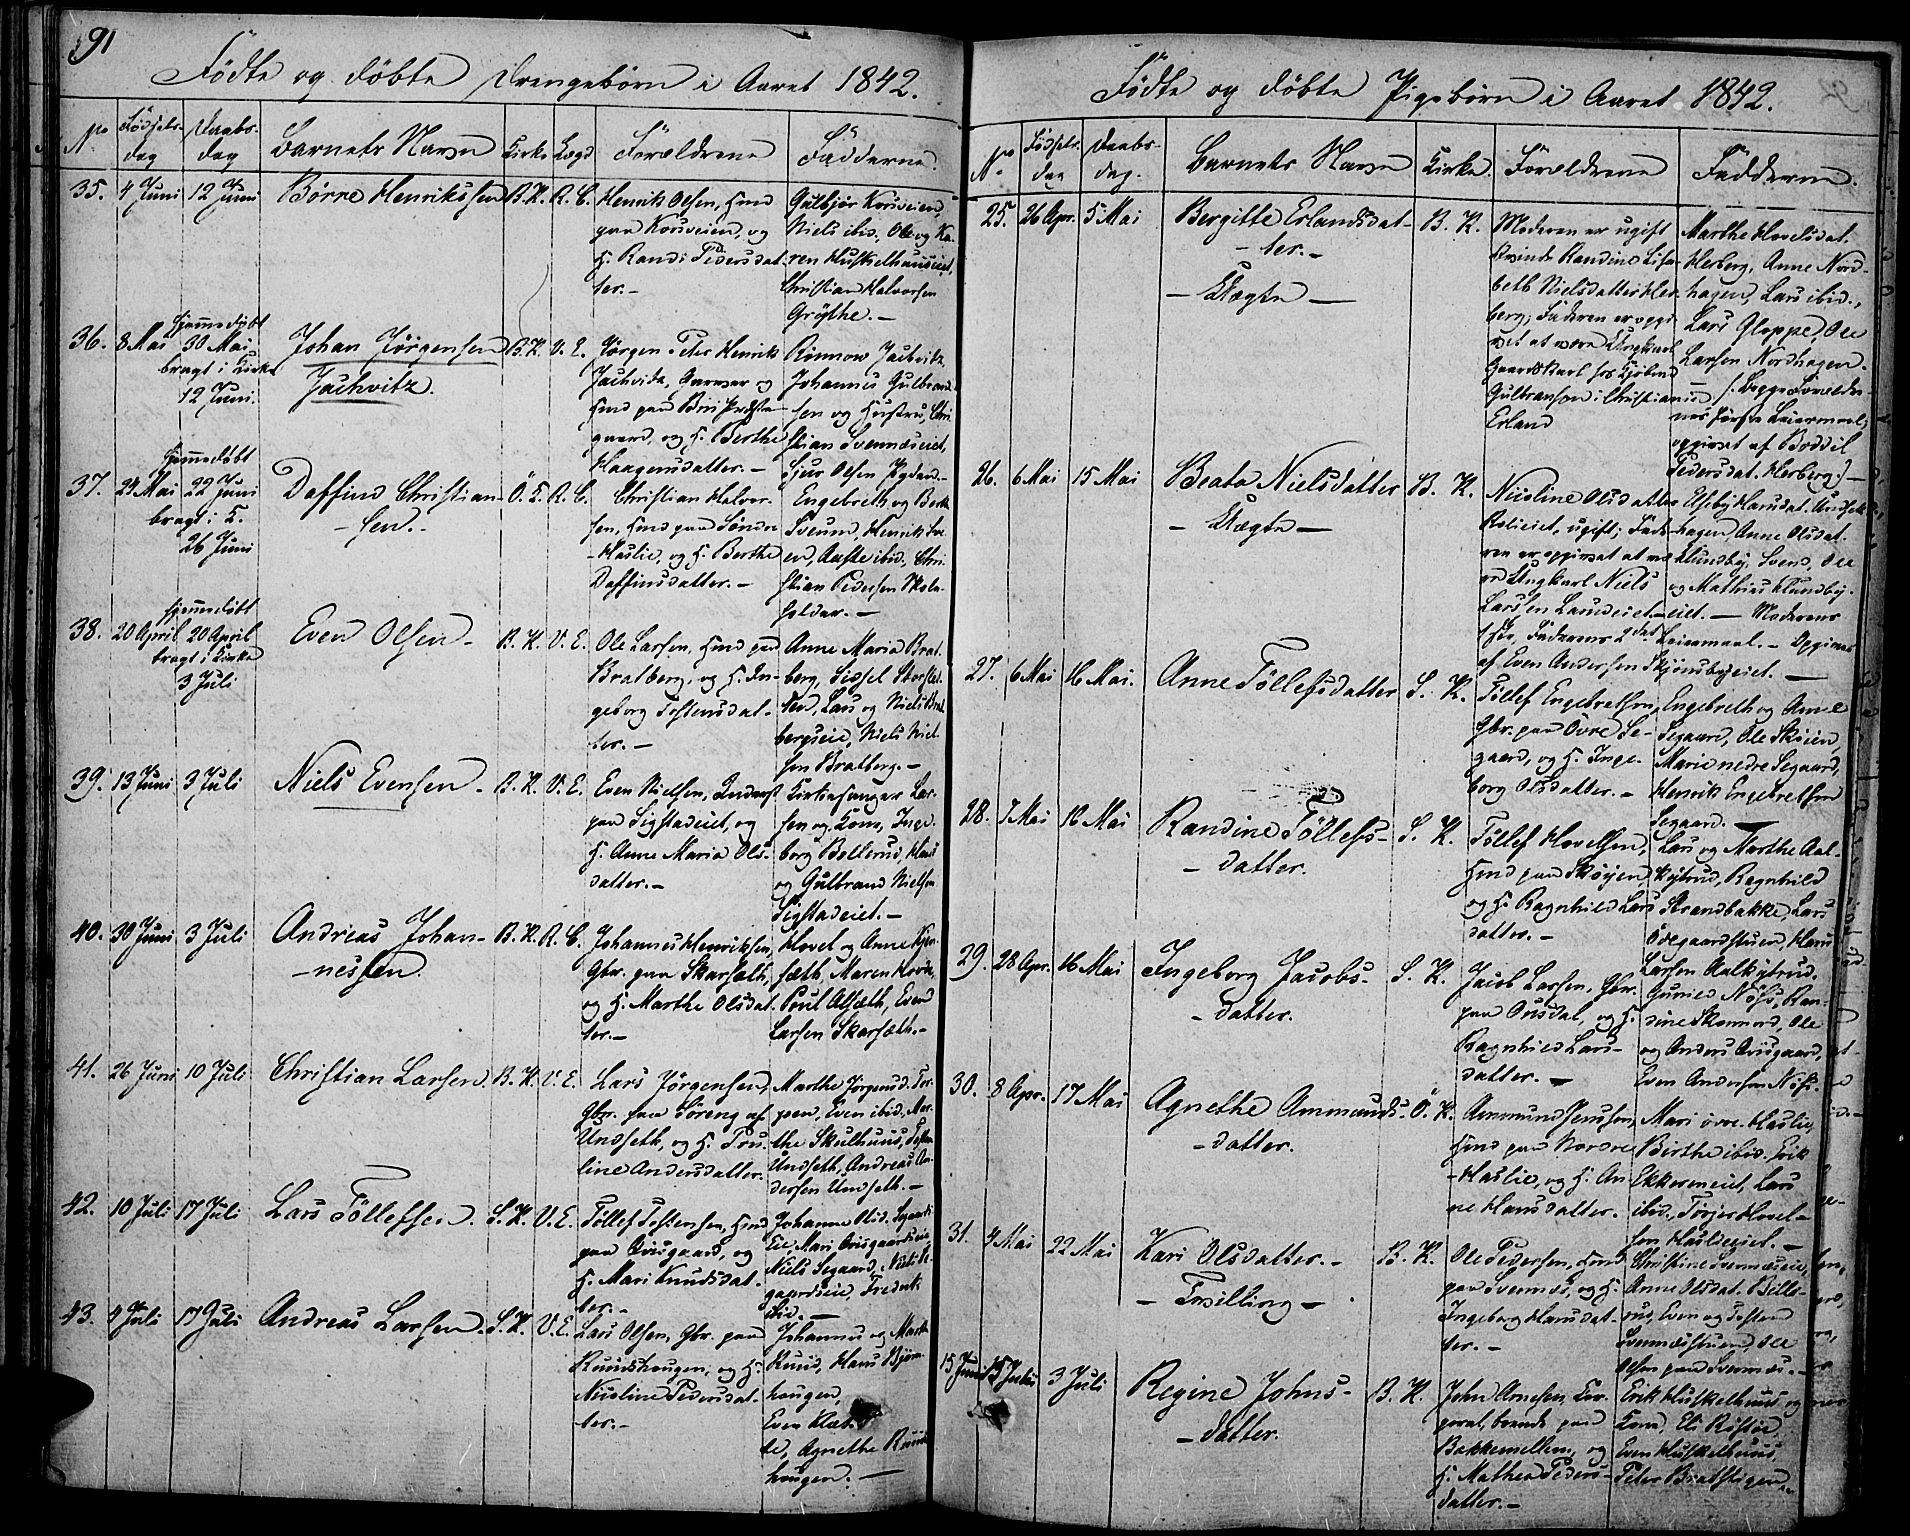 91
Födte og döbte Drengebörn i Aaret 1842.
No Födsels-dag Daabs-dag Barnets Navn Kirke Lægd Forældrene Fadderne
35. 4 Juni 12 Juni Börre Henrikssen B. K. R. C. Henrik Olsen, Hmd
paa Korsveien, og
H. Randi Pedersdat-
ter.-
Gulbjör Korsveien,
Niels ibid., Ole og Ka-
ren Huskelhuuseiet,
Christian Halvorsen
Gröthe.-
36. 8 Mai hjemmedöbt
30 Mai
bragt i Kirke
12 Juni.
Johan Jörgensen
Jachvitz.
B. K. V. E. Jörgen Peter Henrik
Johannes Gulbrand-
paa Biri Præste-
gaard, og H. Berthe
Haagensdatter.-
37. 24 Mai hjemmedöbt
22 Juni
bragt i K.
26 Juni
Daffind Christian-
-sen.-
Ö. K. R. C. Christian Halvor-
sen, Hmd paa Söndre
-Haslie, og H. Berthe
Daffinsdatter.-
Engebreth og Berthe
Sveum, Henrik
Aaste ibid., Chri-
stian Pedersen Skole-
holder.-
38. 20 April hjemmedöbt
20 April
bragt i Kirke
3 Juli
Even Olsen-
B. K. V. E. Ole Larsen, Hmd paa
Bratberg, og H. In-
geborg Tostensdat-
ter.-
Anne Maria Brat-
berg, Sissel
Lars og Niels Brat-
bergseie, Niels Niel-
sen Bratberg.-
39. 13 Juni 3 Juli Niels Evensen- B. K. V. E. Even Nielsen, Inderst
paa Sigstadeiet, og
H. Anne Maria Ols-
datter.-
Kirkesanger Lar-
sen og Kone, Inge-
borg Bollerud, Hans
og Gulbrand Nielsen
Sigstadeiet.-
40. 30 Juni 3 Juli Andreas Johan-
-nessen.
B. K. R. C. Johannes Henriksen,
Gbr. paa Skarseth,
og H. Marthe Olsdat-
ter.-
Hovel og Anne
Maren
Poul Alseth, Even
Larsen Skarseth.-
41. 26 Juni 10 Juli Christian Larsen. B. K. V. E. Lars Jörgensen,
Gbr. paa Söreng af
Undseth, og H. Pau-
line Andersdatter.
Marthe Jörgensd. Tor-
pen, Even ibid., Mar-
the Skulhuus,
Undseth, Andreas An-
dersen Undseth.-
42. 10 Juli 17 Juli Lars Töllefsen. S. K. V. E. Töllef Tostensen, Hmd
paa Onsgaard, og
H. Mari Knudsdat-
ter.-
Johanne
Eie, Mari Onsgaardseie,
Niels Segaard,
43. 4 Juli 17 Juli Andreas Larsen. S. K. V. E. Lars Olsen, Gbr. paa
Ruudshaugen, og H.
Nicoline Pedersdat-
ter.-
Johannes og Marthe
Ruud, Hans Björn-
haugen,
Even
Agnethe Ruuds-
haugen.-
Födte og döbte Pigebörn i Aaret 1842.
No Födsels-dag Daabs-dag. Barnets Navn Kirke. Forældrene Fadderne.
25. 26 Apr. 5 Mai Bergitte Erlandsdat-
-ter.-
-Uægte-
B. K. Moderen er ugift
Qvinde Randine Lisa-
beth Nielsdatter Her-
berg; Faderen er opgi-
vet at være Ungkarl
Gaardskarl hos Kjöbmd
Gulbransen i Christiania
Erland
Marthe Hovelsdat.
Herberg, Anne Nord-
hagen, Lars ibid.,
Lars Gloppe, Ole
Larsen Nordhagen.
-/: Begge Forældre-
nes förste Leiermaal;
opgivet af Boddil
Pedersdat. Herberg :/-
26. 6 Mai 15 Mai Beata Nielsdatter
-Uægte-
B. K. Nicoline Olsdatter
ugift; Fade-
ren er opgivet at væ-
re Ungkarl Niels
Larsen
1ste, Faderens 2det Leiermaal.- Opgivet
af Even Andersen Skjönsbyeiet.-
Elseby Hansdat.
hagen, Anne Olsdat.
Klundby, Svend, Ole
og Mathias Klundby-
eiet.- Moderens
27. 6 Mai 16 Mai. Anne Töllefsdatter S. K. Töllef Engebretsen,
Gbr. paa Övre Se-
gaard, og H. Inge-
borg Olsdatter.-
Engebreth og Anne
Segaard, Ole Skoien,
Marie nedre Segaard,
Henrik Engebretsen
Segaard.-
28. 7 Mai 16 Mai Randine Töllefs-
-datter.
S. K. Töllef Hovelsen,
Hmd paa Sköjen
og H. Ragnhild Lars-
datter.-
Lars og Marthe Aal-
kjstrud, Ragnhild
Strandbakke, Lars
Ödegaardstuen, Hans
Larsen Aalkjstrud.
29. 28 Apr. 16 Mai Ingeborg Jacobs-
-datter.
S. K. Jacob Larsen, Gbr.
paa Onsdal, og H.
Ragnhild Lars-
datter.-
Gunild Nöss, Ran-
dine Skomrud, Ole
og Anders Onsgaard,
Even Andersen Nöss.
30. 8 Apr. 17 Mai Agnethe Ammunds-
-datter.
Ö. K. Ammund Jenssen,
Hmd paa Nordre
-Haslie, og H. An-
ne Hansdatter.
Mari övre Haslie,
Birthe ibid., Erik
Ekkerneiet, Lars
ibid., Torjer Hovel-
sen Haslieeiet.-
31. 4 Mai 22 Mai Kari Olsdatter.-
-Tvilling-
B. K. Ole Pedersen, Hmd
paa Svennæs, og H.
Ingeborg Hansdat-
ter.-
Christine Svennæseie,
Anne Olsdat. Bille-
rud, Even og Tosten
Svennæsstuen, Ole
Olsen paa Svennæs.-
15 Juni 3 Juli Regine Johns-
-datter.
B. K. John Arnesen, Cor-
poral, boende paa
Bakkemellem, og
H. Mathea Peders-
datter.-
Erik Huskelhuus og
Kone, Eli Röstöe,
Even Huskelhuus,
Peter Bratstigen.-